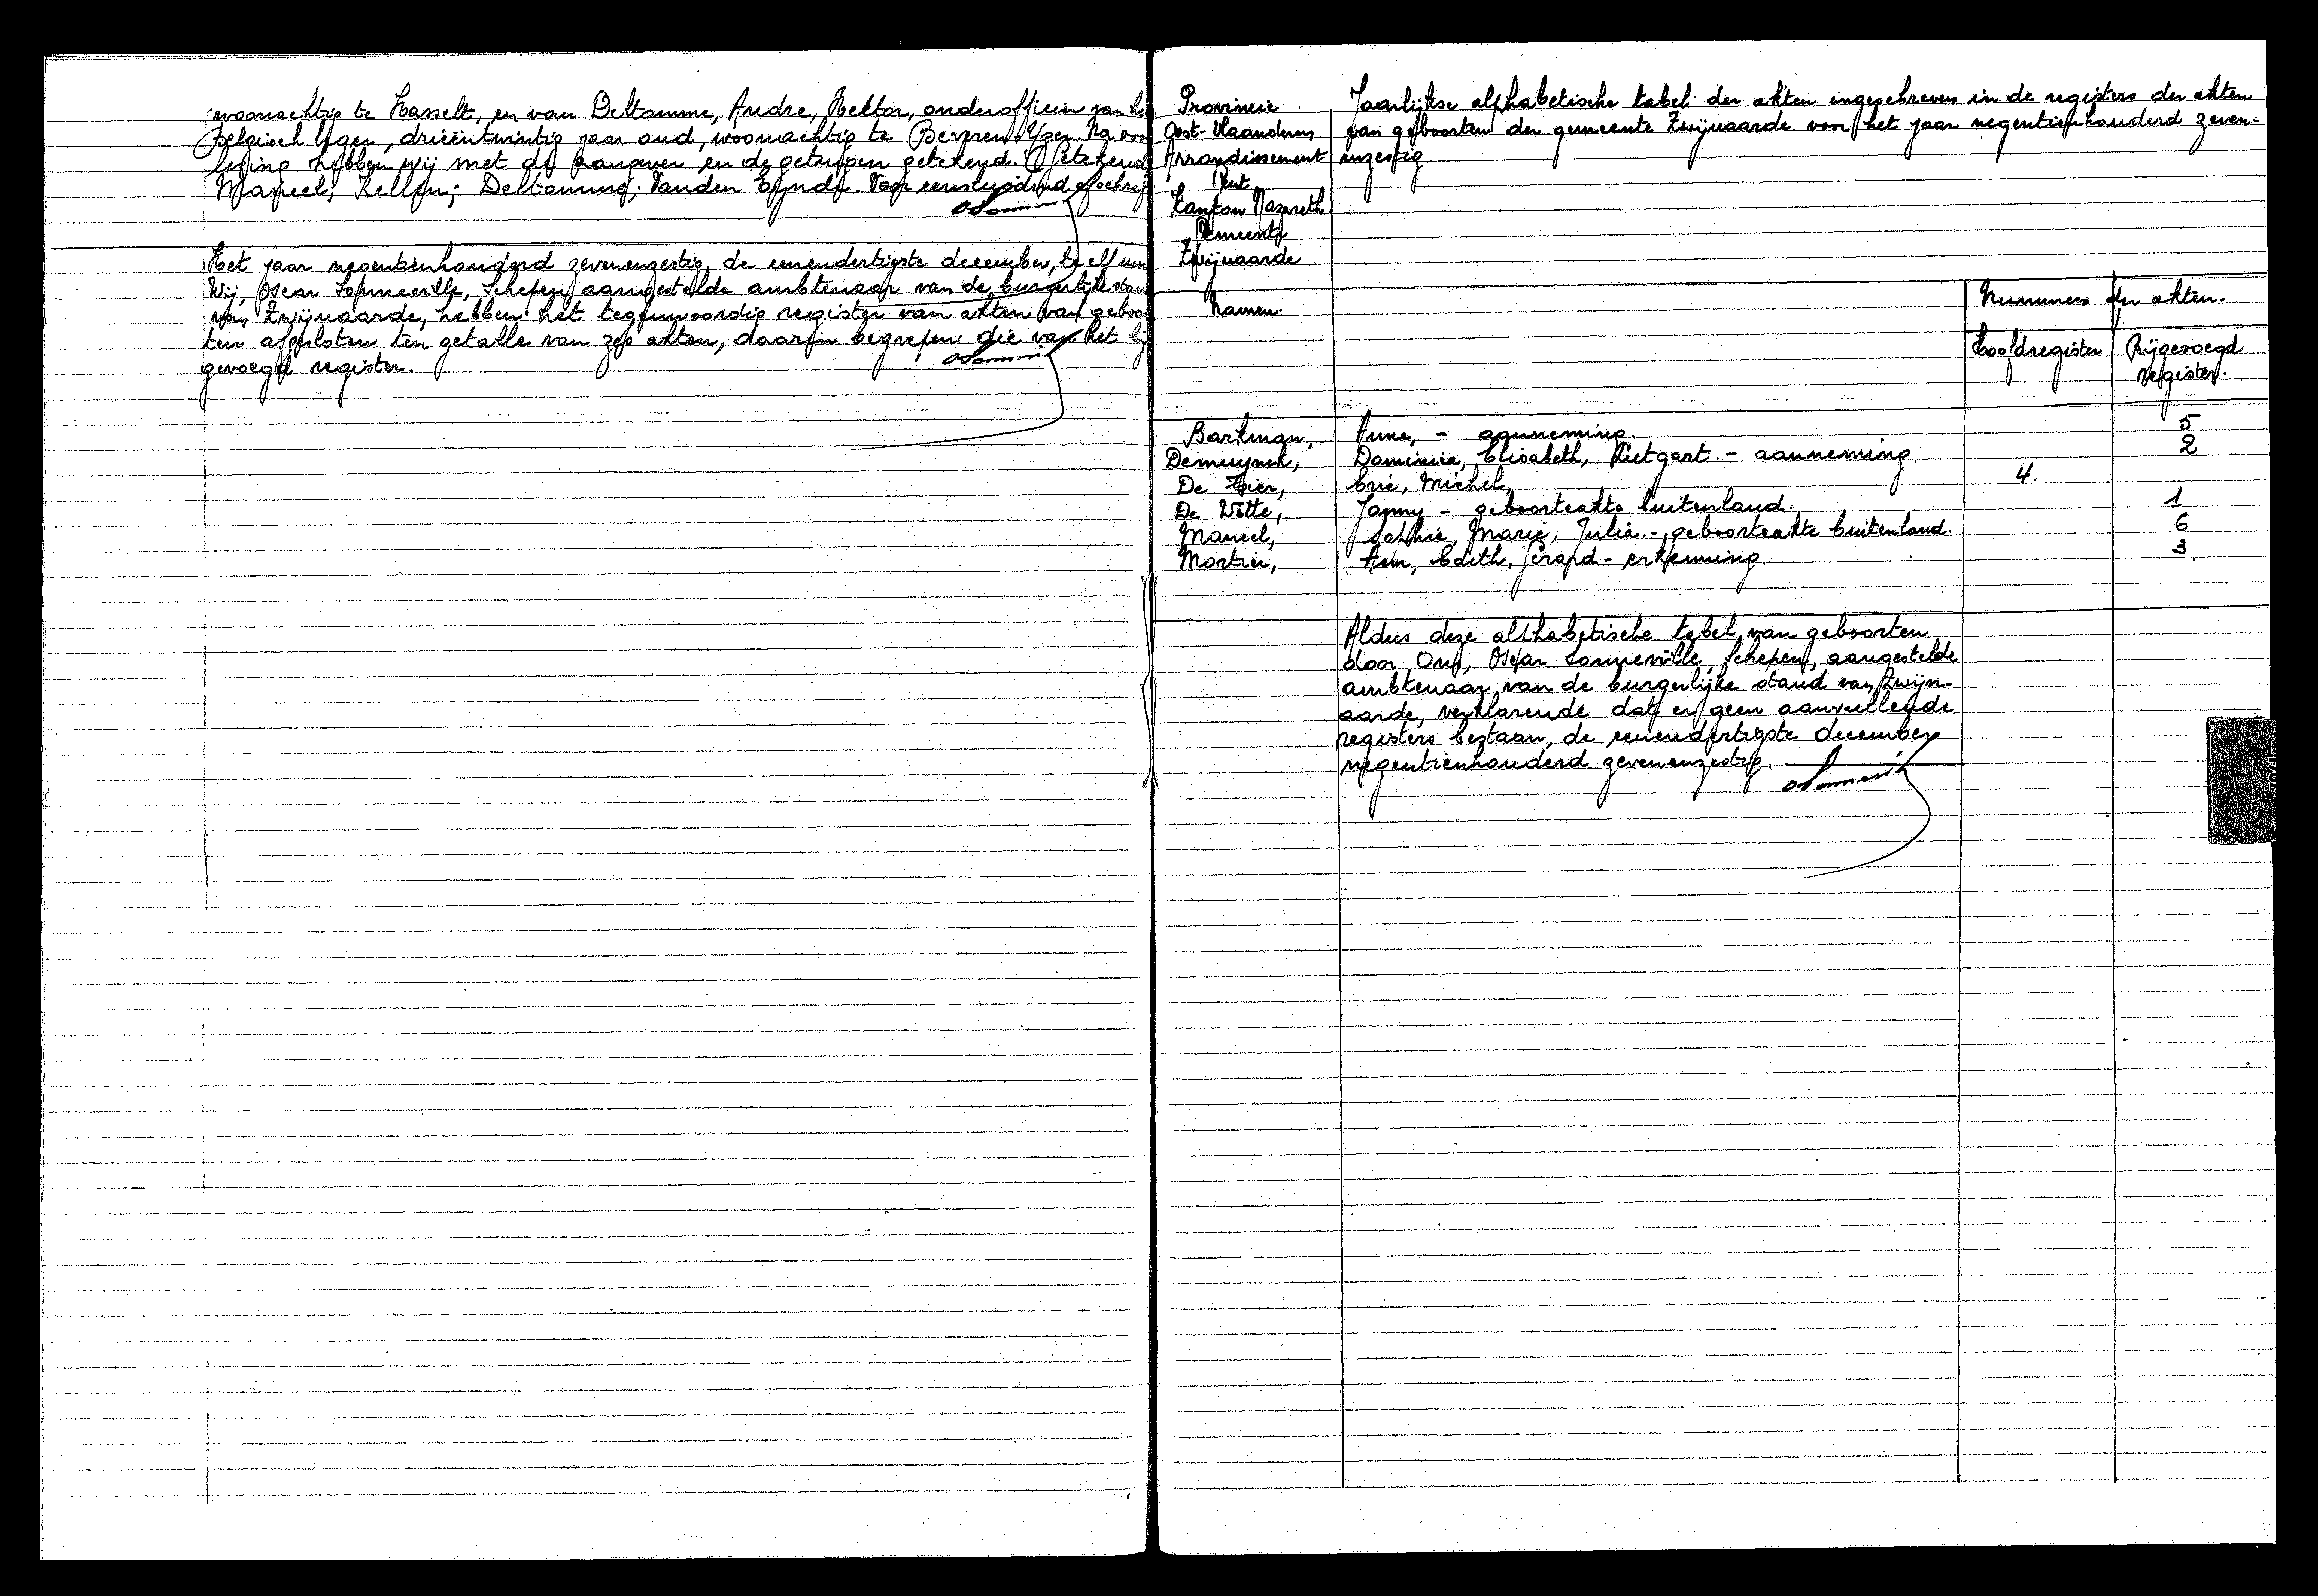 woonachtig te Hasselt, en van Deltomme, Andre, Hektor, onderofficier van he
Belgisch leger, drieëntwintig jaar oud, woonachtig te Bergen. Na voor
lezing hebben wij met de aangever en de getuigen getekend. (Getekend
Maneel; Kellen; Deltomme; Vanden Eynde. Voor eensluidend afschrif
Het jaar negentienhonderd zevenenzestig, de eenendertigste december, te elf uur
Wij, Oscar Sonneville, Schepen aangestelde ambtenaar van de burgerlijke stan
van Zwijnaarde, hebben het tegenwoordig register van akten van geboo
ten afgesloten ten getalle van zes akten, daarin begrepen die van het bij
gevoegd register.
Provincie
Oost-Vlaanderen
Arrondissement
Gent
Kanton Nazareth
Gemeente
Zwijnaarde
Jaarlijkse alphabetische tabel der akten ingeschreven in de registers der akten
van geboorten der gemeente Zwijnaarde voor het jaar negentienhonderd zeven-
enzestig
Namen.
Nummers der akten.
Hoofdregister
Bijgevoegd
register.
Barkman, Anne, - aanneming. 5
Demuynck, Dominica, Elisabeth, Lietgart. - aanneming. 2
De Eric, Michel, 4.
De Witte, Jonny - geboorteakte buitenland. 1
Maneel, Sophie, Marie, Julia. - geboorteakte buitenland. 6
Mortier, Ann, Edith, Gerard - erkenning. 3
Aldus deze alphabetische tabel van geboorten
door Ons, Oscar Sonneville, Schepen, aangestelde
ambtenaar van de burgerlijke stand van Zwijn-
aarde, verklarende dat er geen aanvullende
registers bestaan, de eenendertigste december
negentienhonderd zevenenzestig.